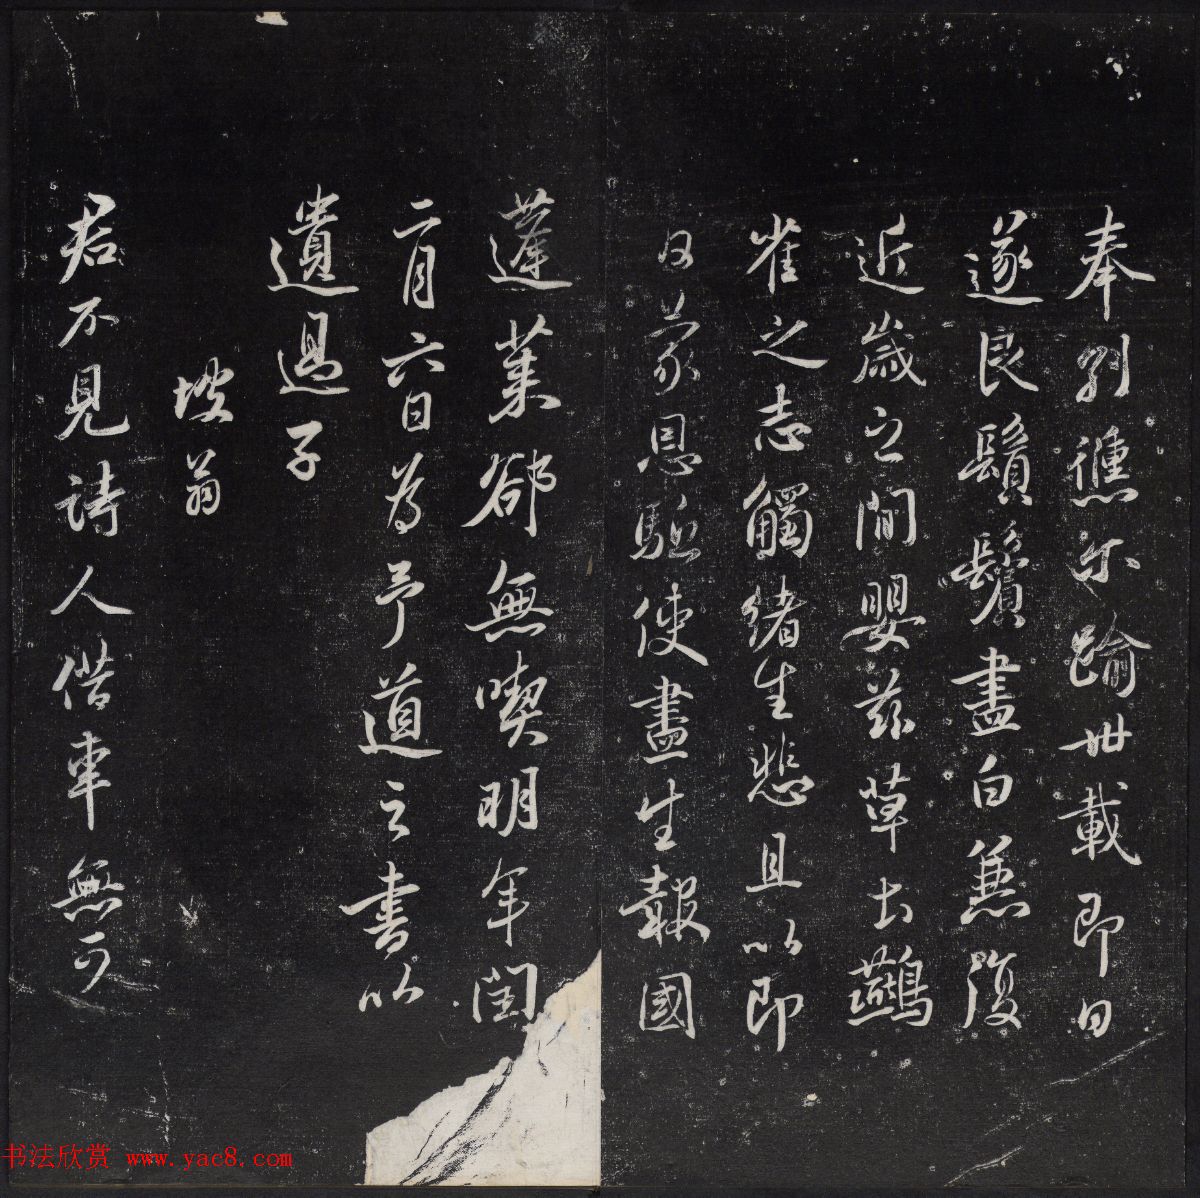 奉別儵尔踰卌載即日
遂良鬚鬢盡白兼復
近歲之間嬰茲草土鷰
雀之志觸緒生悲且以即
日蒙恩驅使盡生報國
蓬莱郤無喫明年閏
二月六日為予道之書以
遺過子
坡翁
君不見詩人借車無可
书法欣赏 www.yac8.com